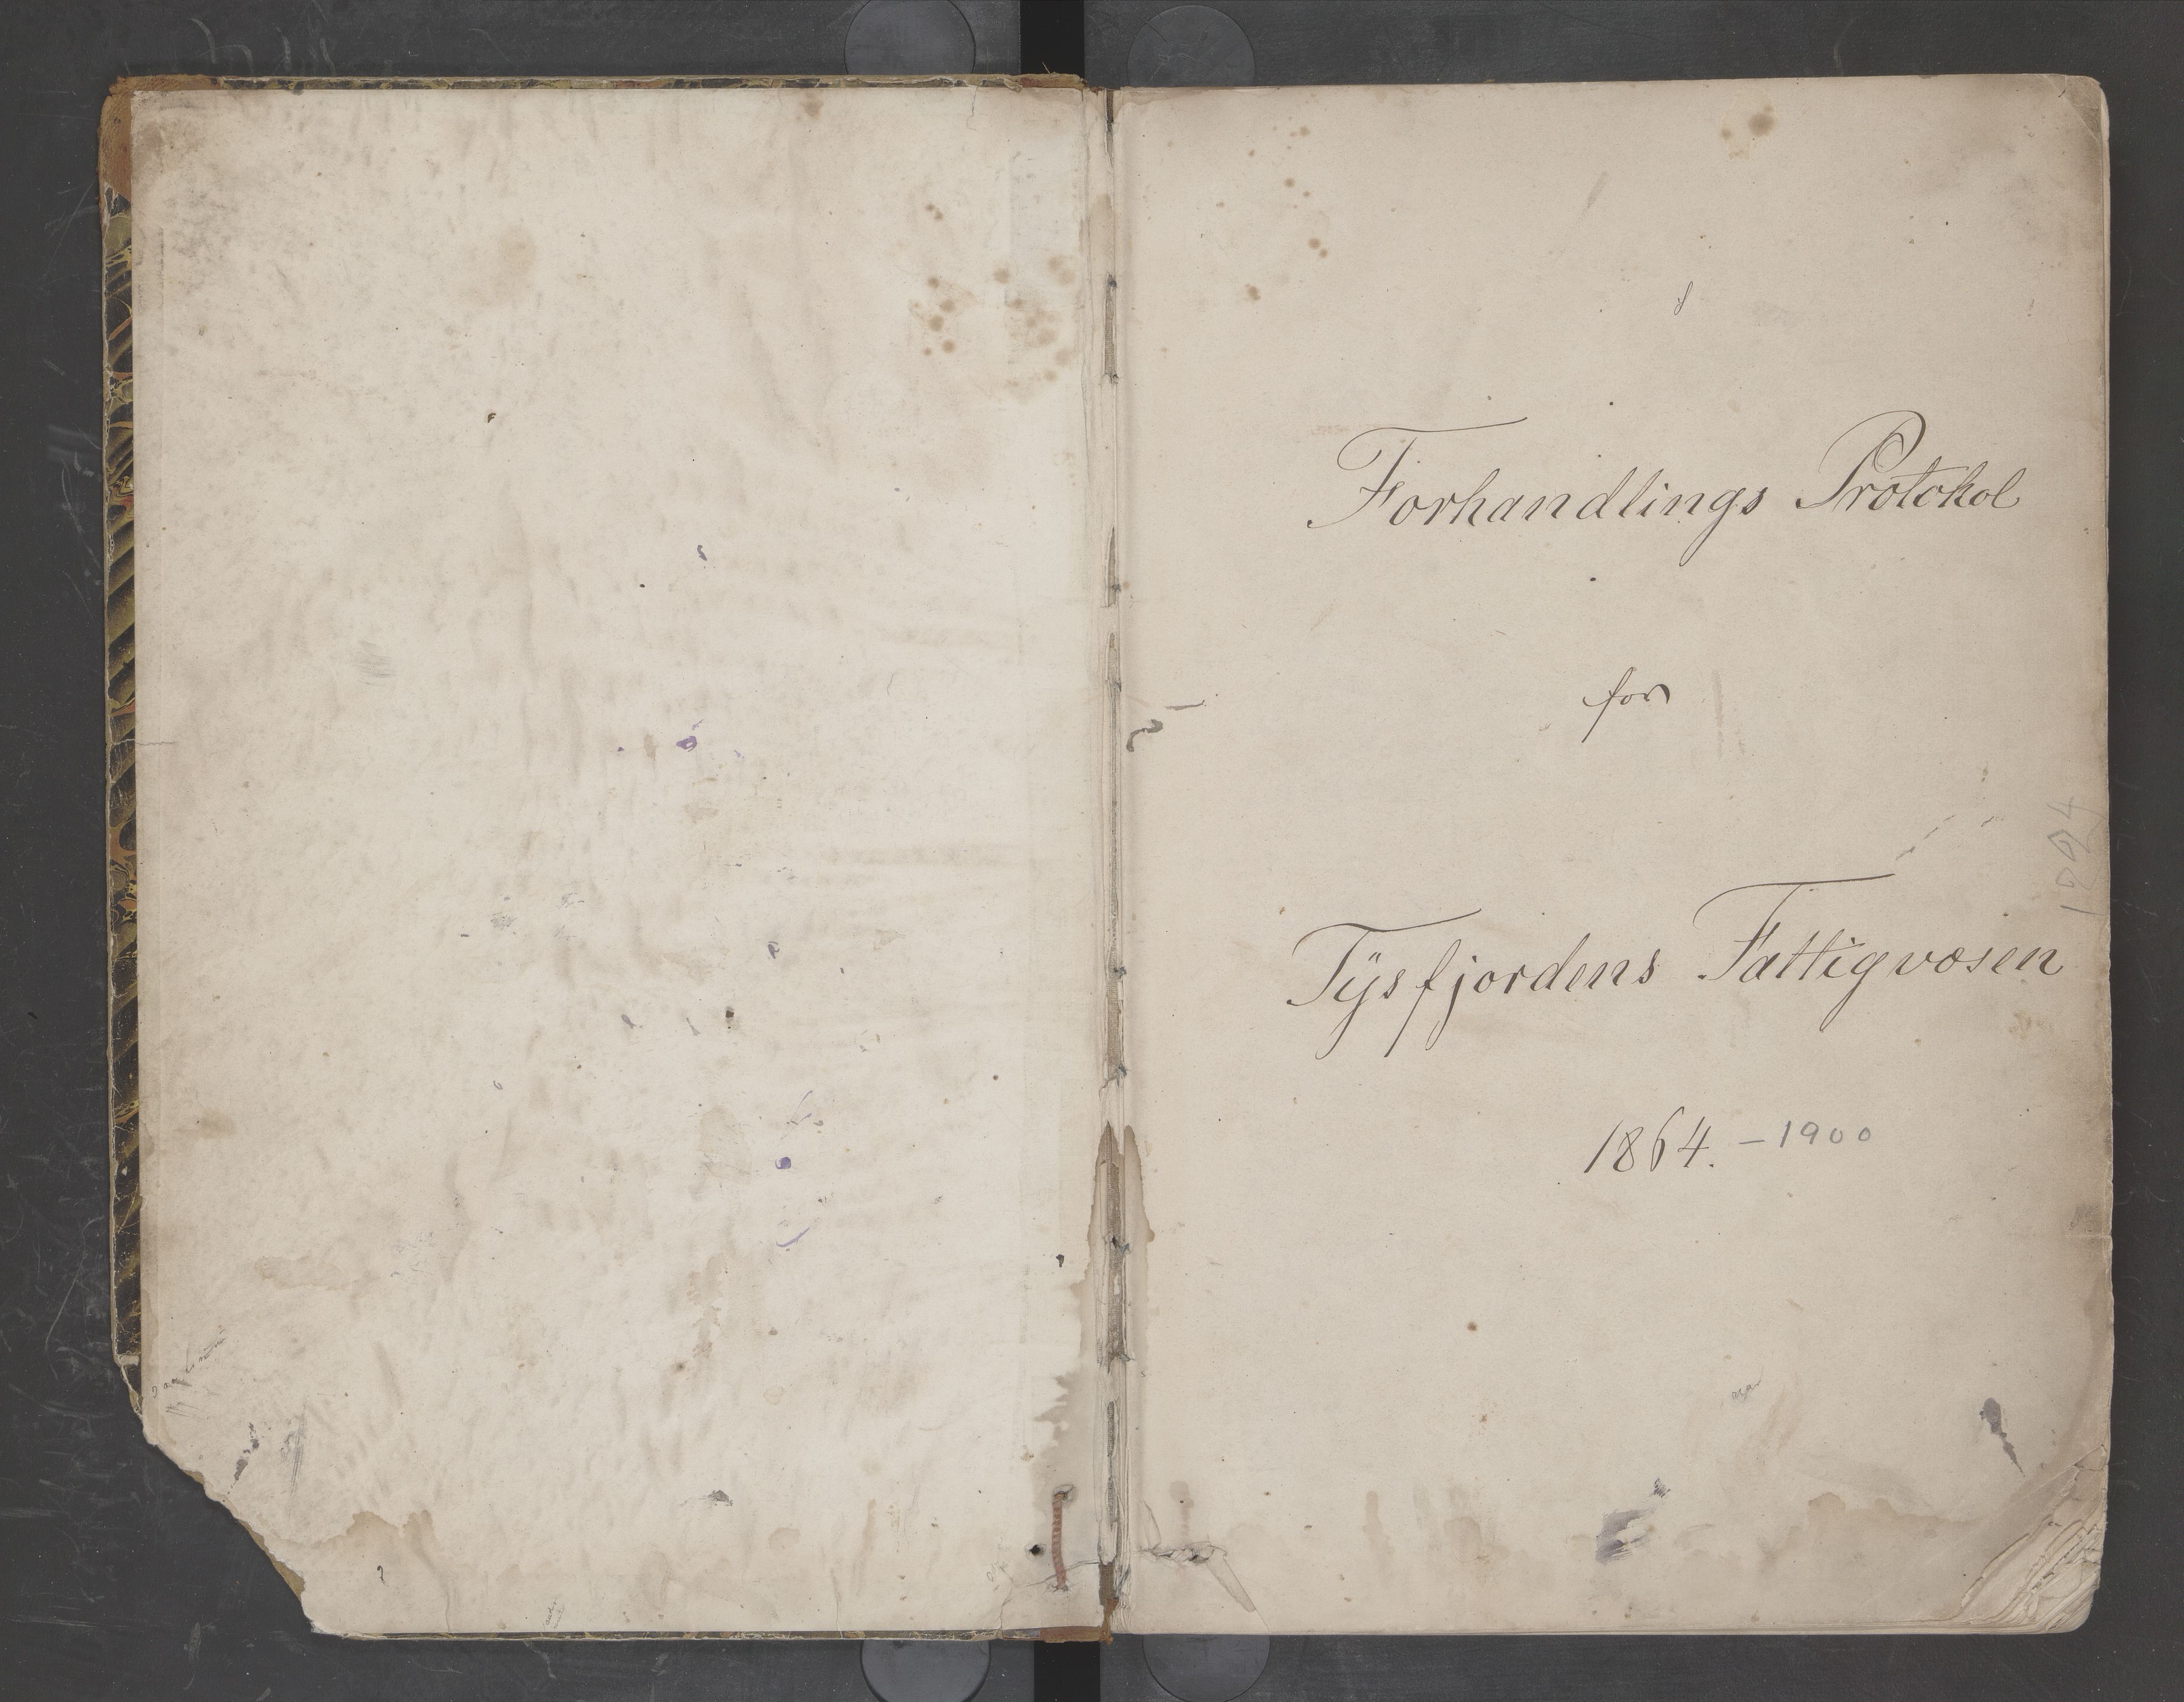 Forhandlings Protokol
for
Tÿsfjordens Fattigvæsen
1864. – 1900